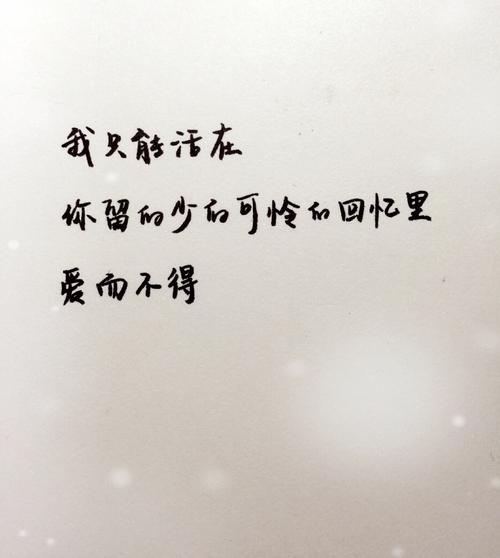 我只能活在
你留的少的可怜的回忆里
爱而不得